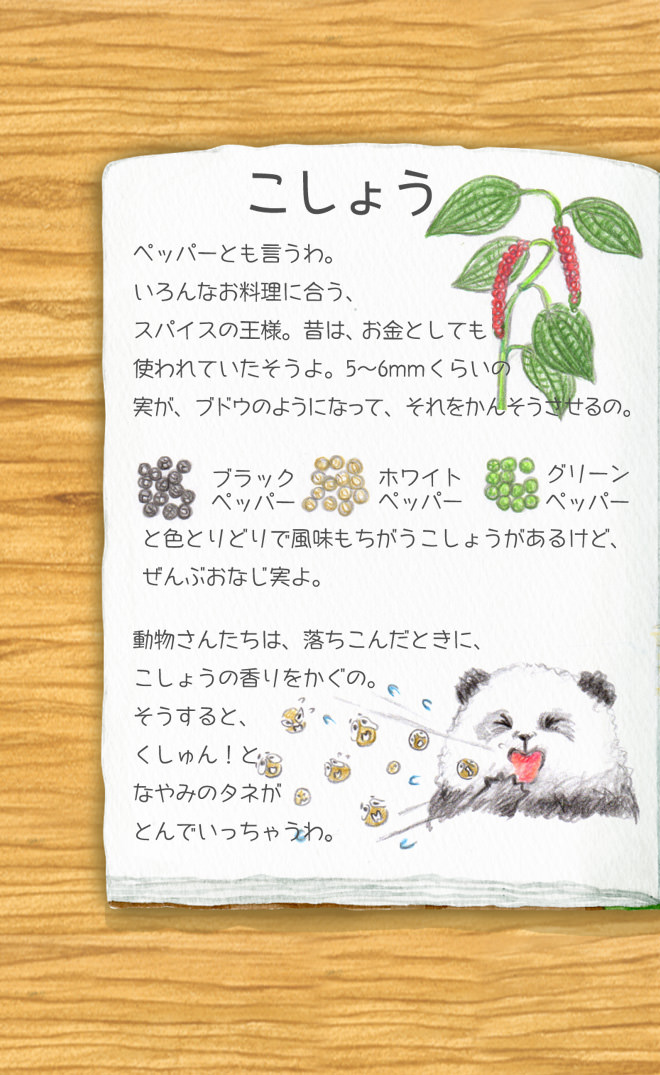 こしょう
ペッパーとも言うわ。
いろんなお料理に合う、
スパイスの王様。昔は、お金としても
使われていたそうよ。5〜6mmくらいの
実が、ブドウのようになって、それをかんそうさせるの。
ブラックペッパー ホワイトペッパー グリーンペッパー
と色とりどりで風味もちがうこしょうがあるけど、
ぜんぶおなじ実よ。
動物さんたちは、落ちこんだときに、
こしょうの香りをかぐの。
そうすると、
くしゅん！と
なやみのタネが
とんでいっちゃうわ。